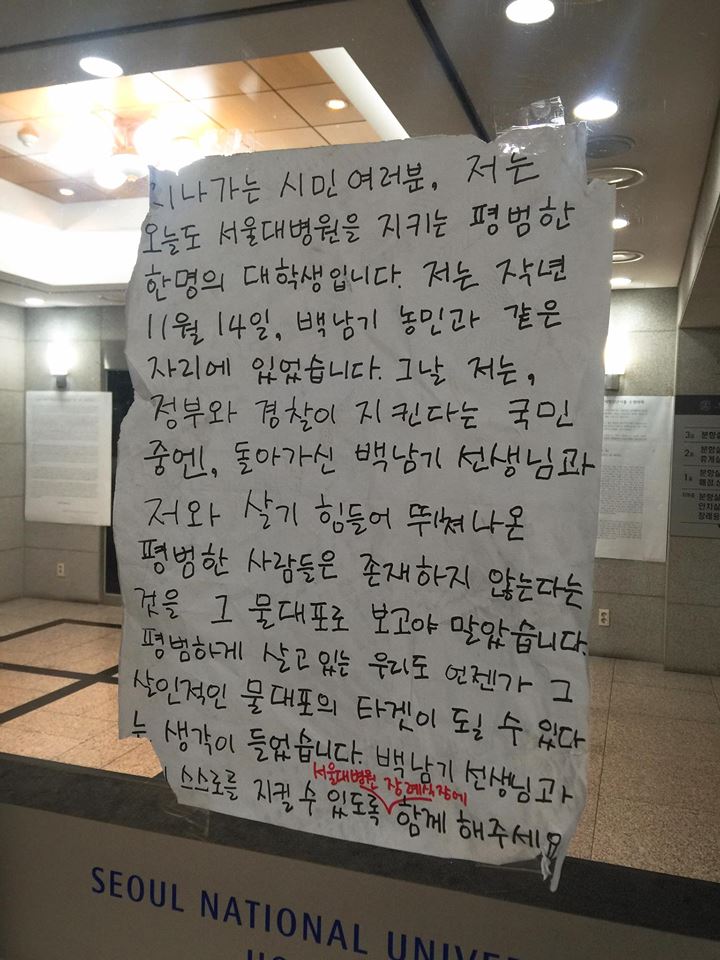 지나가는 시민 여러분, 저는
오늘도 서울대병원을 지키는 평범한
한명의 대학생입니다. 저는 작년
11월 14일, 백남기 농민과 같은
자리에 있었습니다. 그날 저는,
정부와 경찰이 지킨다는 국민
중엔, 돌아가신 백남기 선생님과
저와 살기 힘들어 뛰쳐나온
평범한 사람들은 존재하지 않는다는
것을 그 물대포로 보고야 말았습니다.
평범하게 살고 있는 우리도 언젠가 그
살인적인 물대포의 타겟이 될 수 있다
는 생각이 들었습니다. 백남기 선생님과
서울대병원 장례식장에
스스로를 지킬 수 있도록 함께 해주세요
SEOUL NATIONAL UNIVER
3층 분향실
2층 분향실
1층